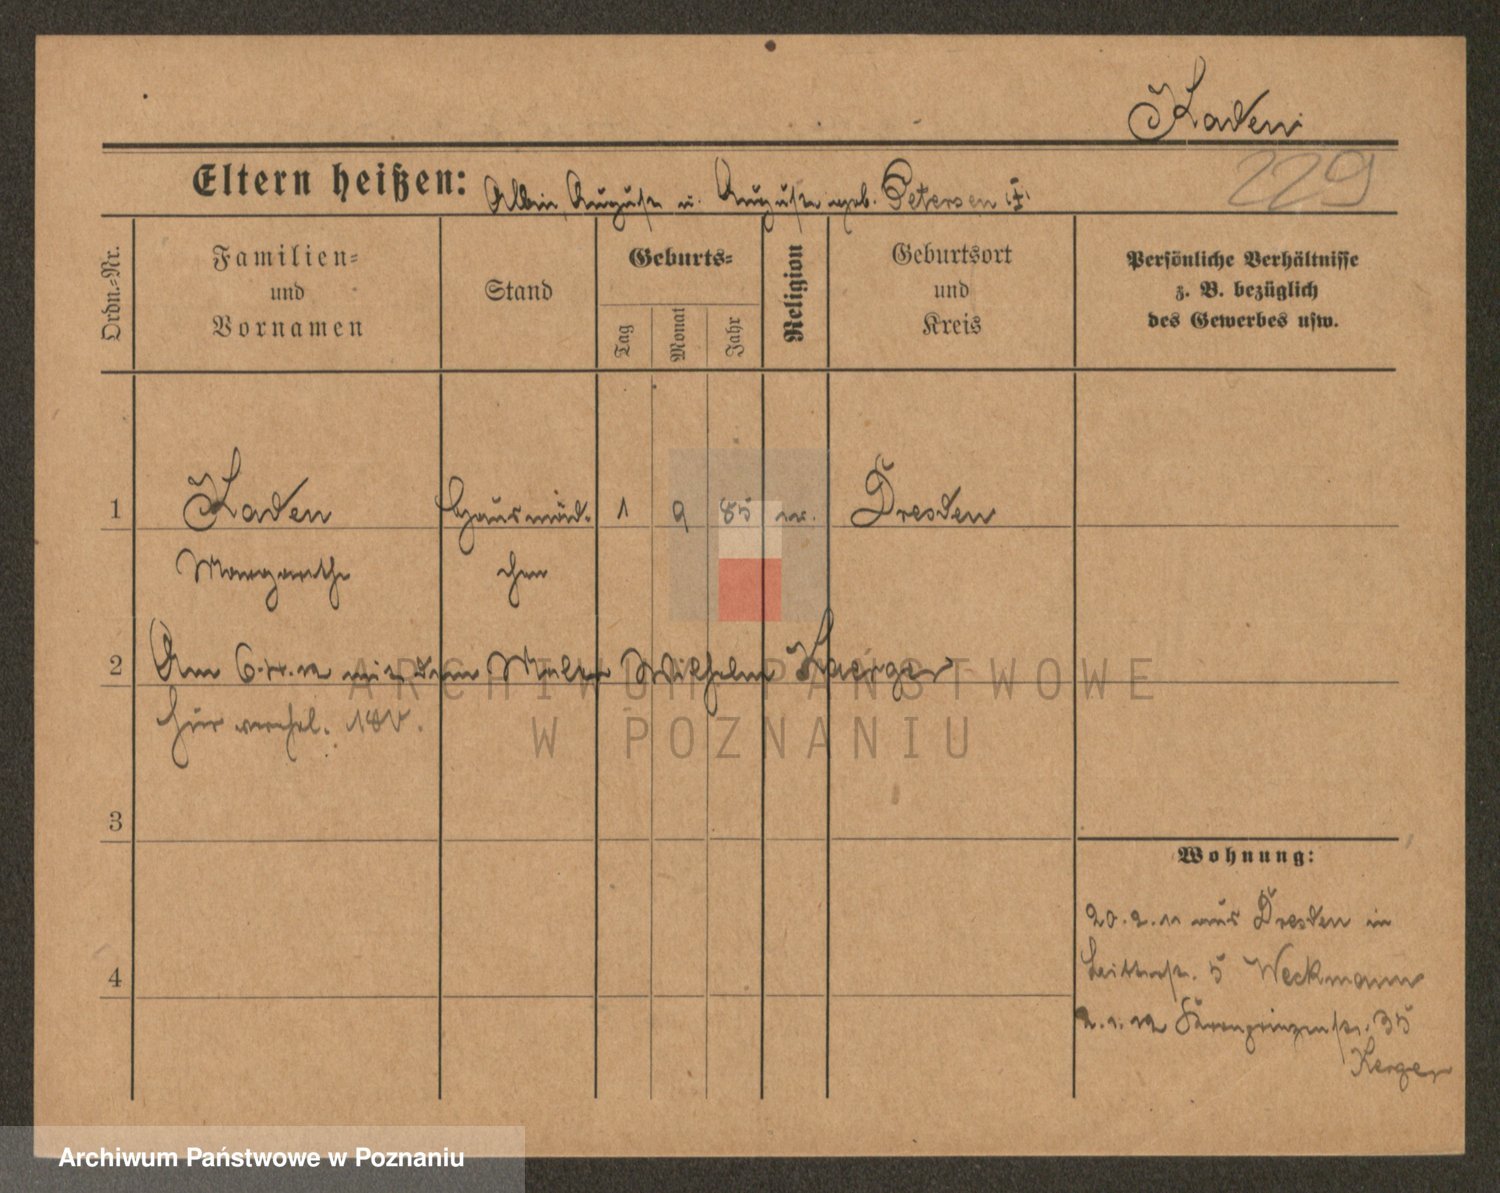 Kaden
229
Eltern heißen: Albin August u. Auguste geb. Petersen
Ordn.-Nr.
Familien-
und
Vornamen
Stand
Geburts-
Tag
Monat
Jahr
Religion
Geburtsort
und
Kreis
Persönliche Verhältnisse
z. B. bezüglich
des Gewerbes usw.
1 Kaden Hausmäd. 1 9 85 ev. Dresden
Margarethe chen
2 Am 6. 12 mit dem Maler Wilhelm Kaerger
hier verehel.
3
4
Wohnung:
20.2.11 aus Dresden in
5 Weckmann
2.1.12 Kronprinzenstr. 35
Kerger
ARCHIWUM PAŃSTWOWE
W POZNANIU
Archiwum Państwowe w Poznaniu